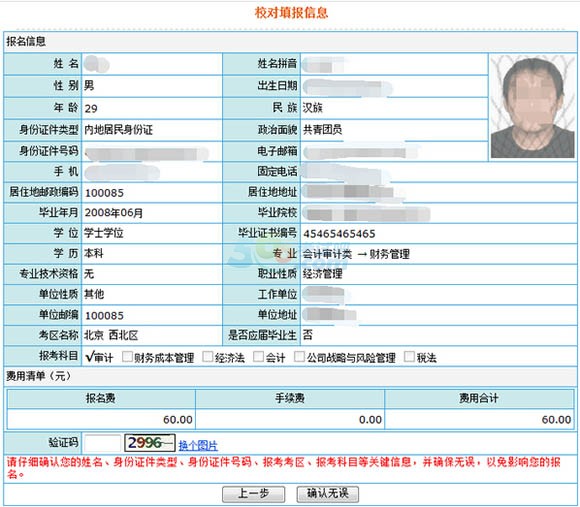 校对填报信息
报名信息
姓 名 姓名拼音
性 别 男 出生日期
年 龄 29 民 族 汉族
身份证件类型 内地居民身份证 政治面貌 共青团员
身份证件号码 电子邮箱
手 机 固定电话
居住地邮政编码 100085 居住地地址
毕业年月 2008年06月 毕业院校
学 位 学士学位 毕业证书编号 45465465465
学 历 本科 专 业 会计审计类 → 财务管理
专业技术资格 无 职业性质 经济管理
单位性质 其他 工作单位
单位邮编 100085 单位地址
考区名称 北京 西北区 是否应届毕业生 否
报考科目 √审计 财务成本管理 经济法 会计 公司战略与风险管理 税法
费用清单（元）
报名费 手续费 费用合计
60.00 0.00 60.00
验证码 2996 换个图片
请仔细确认您的姓名、身份证件类型、身份证件号码、报考考区、报考科目等关键信息，并确保无误，以免影响您的报
名。
上一步 确认无误